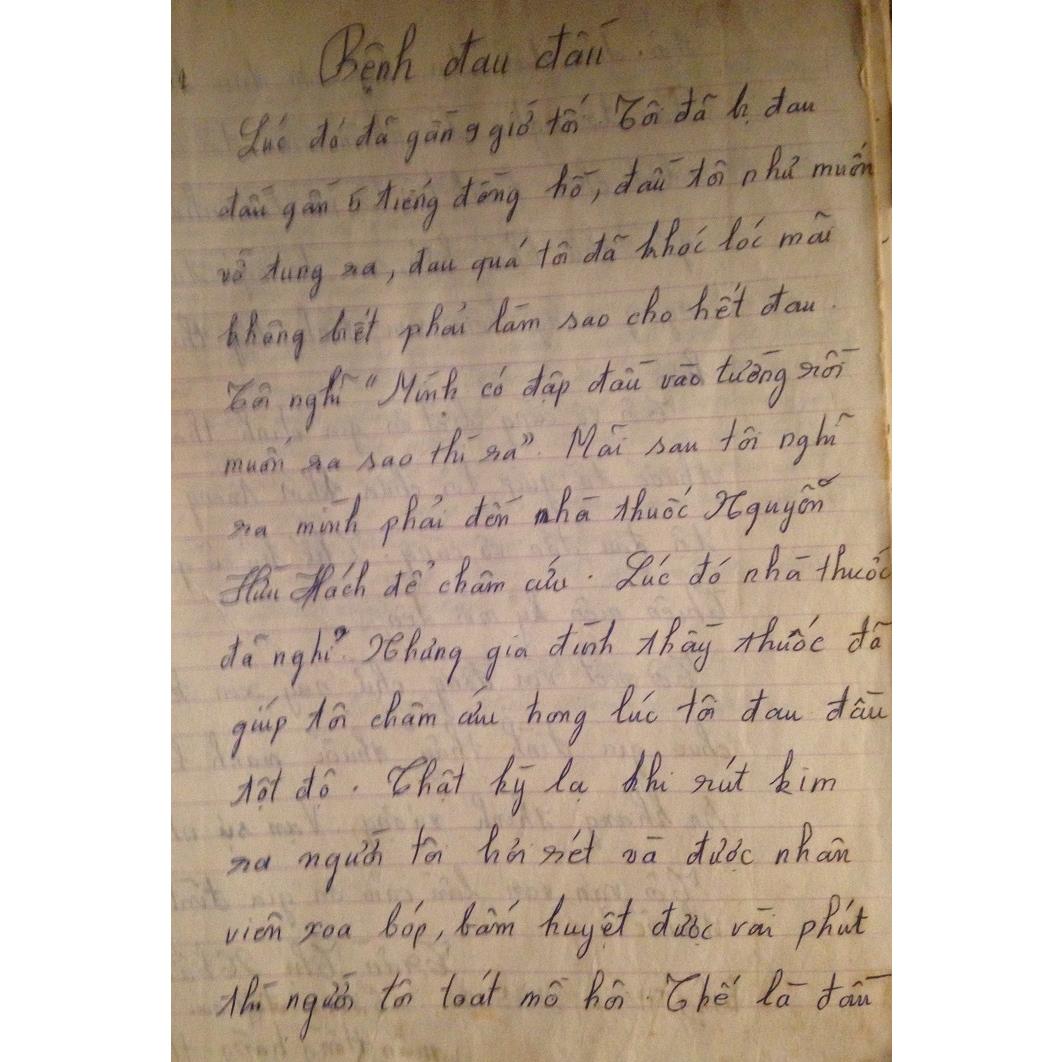 Bệnh đau đầu
Lúc đó đã gần 9 giờ tối. Tôi đã bị đau
đầu gần 5 tiếng đồng hồ, đầu tôi như muốn
vỡ tung ra, đau quá tôi đã khóc lóc mãi
không biết phải làm sao cho hết đau.
Tôi nghĩ "Mình có đập đầu vào tường rồi
muốn ra sao thì ra". Mãi sau tôi nghĩ
ra mình phải đến nhà thuốc Nguyễn
Hữu Hách để châm cứu. Lúc đó nhà thuốc
đã nghỉ. Nhưng gia đình thầy thuốc đã
giúp tôi châm cứu trong lúc tôi đau đầu
tột độ. Thật kỳ lạ khi rút kim
ra người tôi hơi rét và được nhân
viên xoa bóp, bấm huyệt được vài phút
thì người tôi toát mồ hôi. Thế là đầu